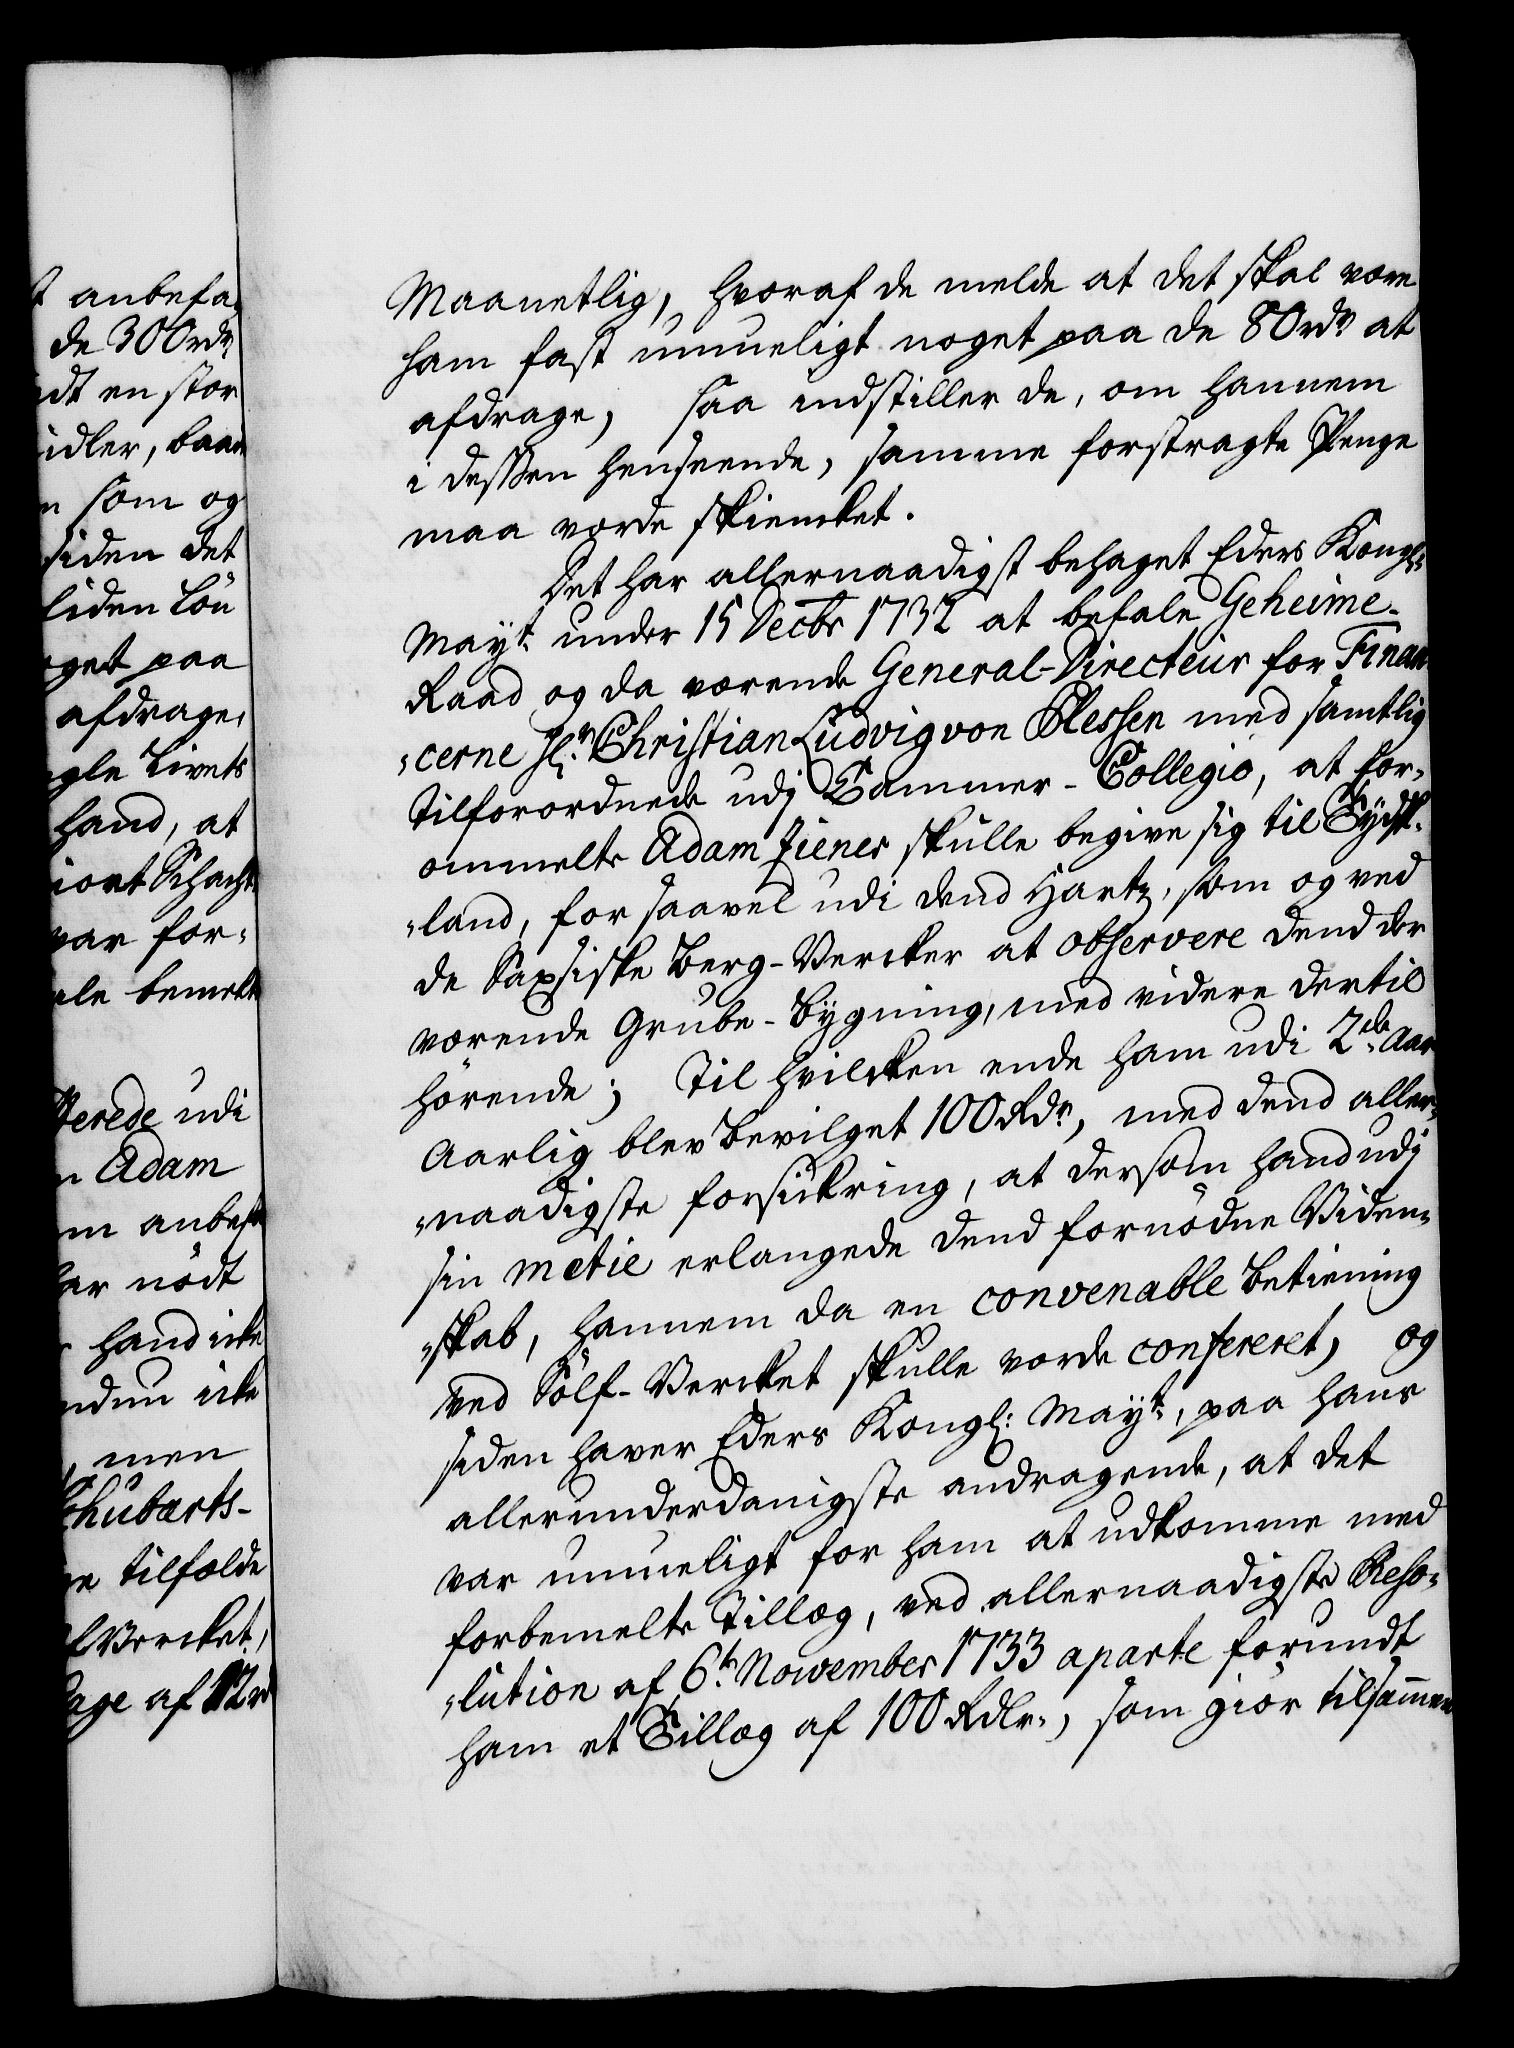 t anbefa,
de 300 rdr
dt en stor
idler, baade
n som og
siden det
liden Lön
oget paa
afdrage,
gle Livets
hand, at
iort Schacht
var for-
ale bemelte
terede udi
n Adam
m anbef
har nödt
hand icke
ndnu icke
, men
Schübarts-
ne tilfælde
lVercket,
Gage af 12 r
Maanetlig, hvoraf de melde at det skal være
ham fast umueligt noget paa de 80 rdr at
afdrage, saa indstiller de, om hannem
i dessen henseende, samme forstragte Penge
maa vorde skiencket.
Det har allernaadigst behaget Eders Kongl:
Mayt. under 15 Decbr 1732 at befale Geheime-
Raad og da værende General-Directeur for Finan
„cerne Hr. Christian Ludvig von Plessen med samtlig
Tilforordnede udj Cammer-Collegio, at for-
ommelte Adam Ziener skulle begive sig til Tydsk-
„land, for saavel udi dend Hartz, som og ved
de Saxsiske Berg-Vercker at observere dend der
værende Grube-bygning, med videre dertil
hörende; Til hvilcken ende ham udi 2de Aar
Aarlig blev bevilget 100 Rdr, med dend aller-
„naadigste forsickring, at dersom hand udj
sin metie erlangede dend fornödne Viden-
„skab, hannem da en convenable betiening
ved Sölf-Vercket skulle vorde confereret, og
siden haver Eders Kongl: Mayt., paa hans
allerunderdanigste andragende, at det
var umueligt for ham at udkomme med
forbemelte Tillæg, ved allernaadigste Reso-
„lution af 6te November 1733 aparte forundt
ham et Tillæg af 100 Rdlr., som giör tilsammen